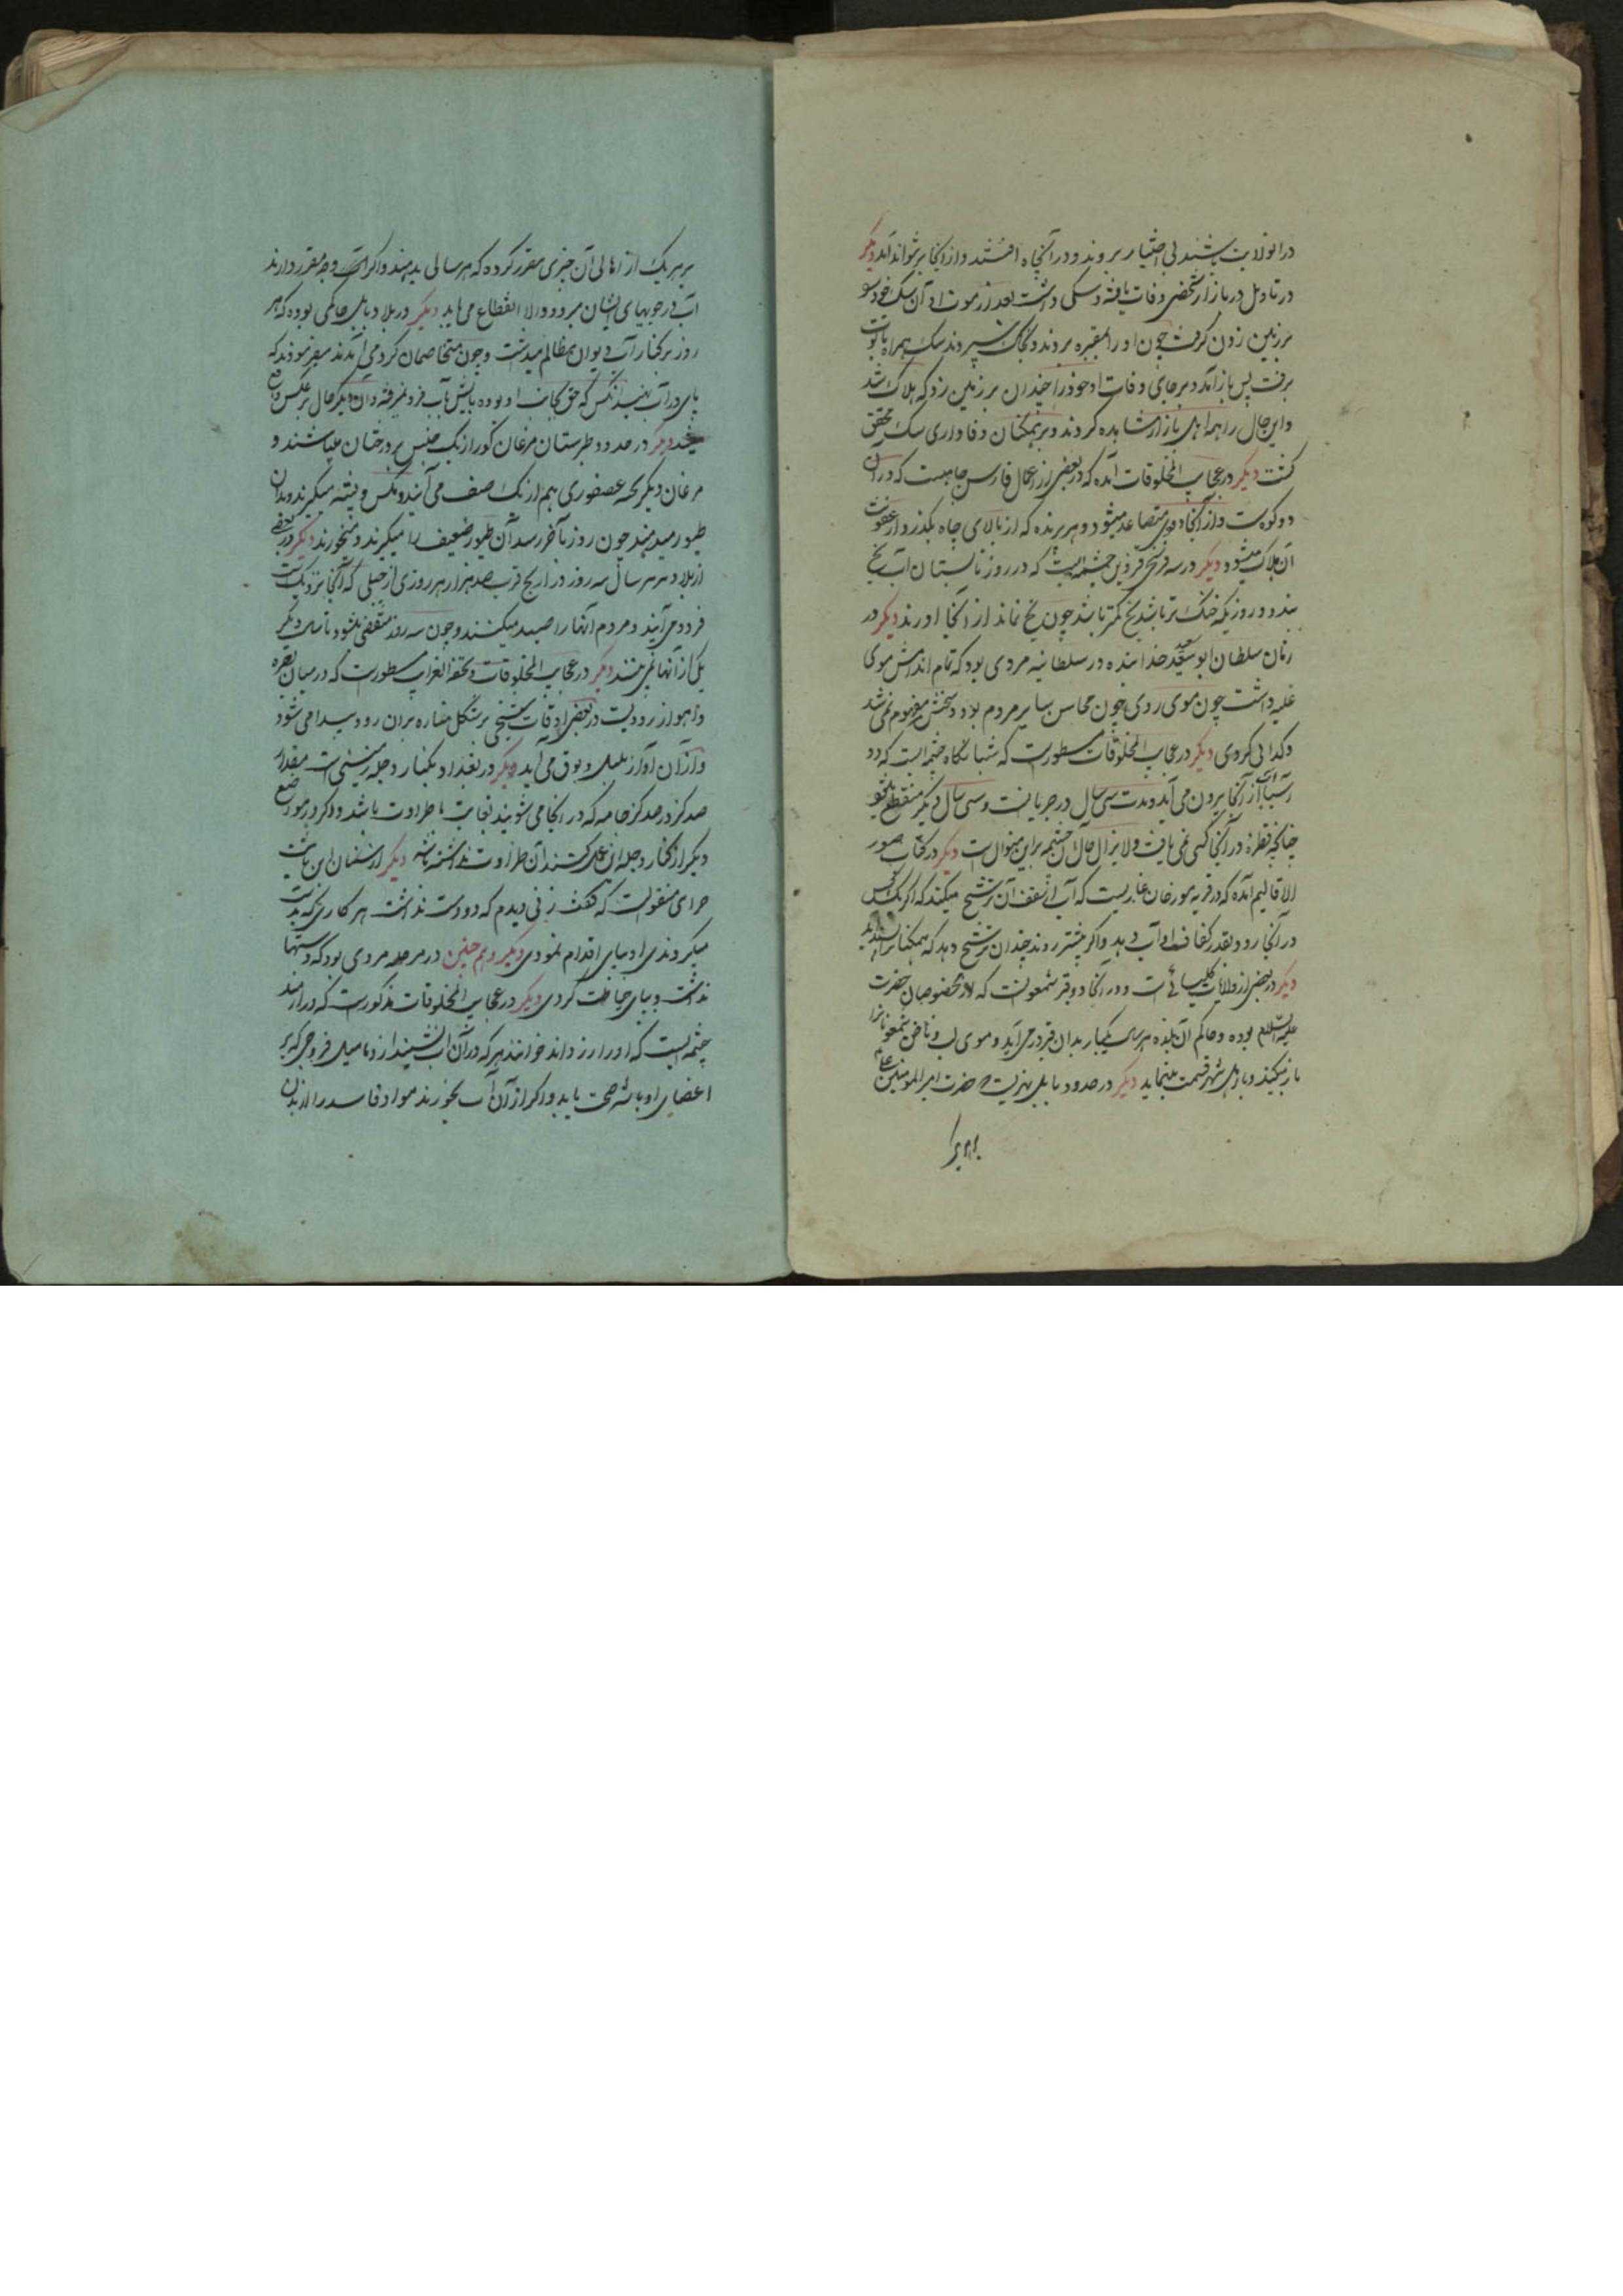 در انولایت باشند بی اختیار بروند و در آنچاه افتند و از آنجا بر نتواند آمد دیگر
در بازار شخصی وفات یافته و سکی داشت بعد از موت او آن سک خود را
بر زمین زدن کرفت چون او را بمقبره بردند و بخاک سپردند سک همراه تابوت
برفت پس باز آمد و بر جای وفات او خود را چندان بر زمین زد که هلاک شد
و این حال را همه اهل بازار مشاهده کردند و بر همکنان وفاداری سک محقق
کشت دیگر در عجایب المخلوقات آمده که در بعضی از اعمال فارس چاهیست که در آن
دو کوه است و از آنجا دودی متصاعد میشود و هر پرنده که از بالای چاه بکذرد از عفونت
آن هلاک میشود دیگر در سه فرسخی قزوین چشمه ایست که در روز تابستان آب یخ
بندد و روزیکه خنک تر باشد یخ کمتر باشد چون یخ نماند از آنجا اورند دیگر در
زمان سلطان ابو سعید خدابنده در سلطانیه مردی بود که تمام اندامش موی
غلبه داشت چون موی روی چون محاسن سایر مردم بود و سخنش مفهوم نمی شد
و کدائی کردی دیگر در عجایب المخلوقات مسطورست که شبانکاه چشمه ایست که دو
آسیا آب از آنجا بیرون می آید و مدت سی سال در جریانست و سی سال دیگر منقطع میشود
چنانچه قطره در آنجا کسی نمی یافت و لایزال حال آن چشمه براین منوال است دیگر در کتاب صور
الاقالیم آمده که در قریه مورخان غاریست که آب از سقف آن ترشح میکند که اگر یک کس
در آنجا رود بقدر کفاف او آب دهد و اگر بیشتر روند چندان ترشح دهد که همکنانرا بسنده آید
دیگر در بعضی از ولایات کلیسائی است و در آنجا دو قبر شمعونست که از مخصوصان حضرت
علیه السلام بوده و حاکم آن بلده هر سال یکبار بدان قبر درمی آید و موی لب و ناخن شمعونرا
باز میکند و باهل شهر قسمت مینماید دیگر در حدود بابل نهریست که حضرت امیر المومنین علی
بهریرا
بر هر یک از اهالی آن چیزی مقرر کرده که هر سالی بدهند و اگر وجه مقرر دارند
آب در جویهای ایشان میرود و الا انقطاع می یابد دیگر در بلاد بابل حاکمی بوده که هر
روز بر کنار آب دیوان مظالم میداشت و چون متخاصمان کرد می آمدند میفرمودند که
پای در آب نهید آنکس که حق بجانب او بوده پایش بآب فرو نمیرفته و آن دیگر حال بر عکس واقع
میشد دیگر در حدود طبرستان مرغان کور از یک جنس بر درختان میباشند و
مرغان دیگر بجثه عصفوری هم از یک صنف می آیند و مکس و پشه میگیرند و بدان
طیور میدهند چون روز بآخر رسد آن طیور ضعیف را میگیرند و میخورند دیگر در بعضی
از بلاد در هر سال سه روز دراریج قریب صد هزار هر روزی از جبلی که آنجا نزدیک است
فرود می آیند و مردم آنها را صید میکنند و چون سه روز منقضی میشود تا سال دیگر
یکی از آنها نمی بینند دیگر در عجایب المخلوقات و تحفة الغرایب مسطورست که در میان بصره
و اهواز رودیست در بعضی اوقات چیزی بر شکل مناره بر آن رود پیدا می شود
و از آن آواز طبل و بوق می آید دیگر در بغداد بکنار دجله زمینی است مقدار
صد کز در صد کز جامه که در آنجا می شویند بغایت با طراوت باشد و اگر در موضع
دیگر از کنار دجله این عمل کنند آن طراوت نداشته باشد دیگر از سنان ابن ثابت
حرانی منقولست که گفت زنی دیدم که دو دست نداشت هر کاری که بدست
میکردندی او بپای اقدام نمودی دیگر و هم چنین در مرحله مردی بود که دستها
نداشت و بپای خیاطت کردی دیگر در عجایب المخلوقات مذکورست که در ارمنیه
چشمه ایست که او را زراوند خوانند هر که در آن آب نشیند از دمامیل و قروحی که بر
اعضای او باشد صحت یابد و اگر از آن آب بخورند مواد فاسد را از بدن